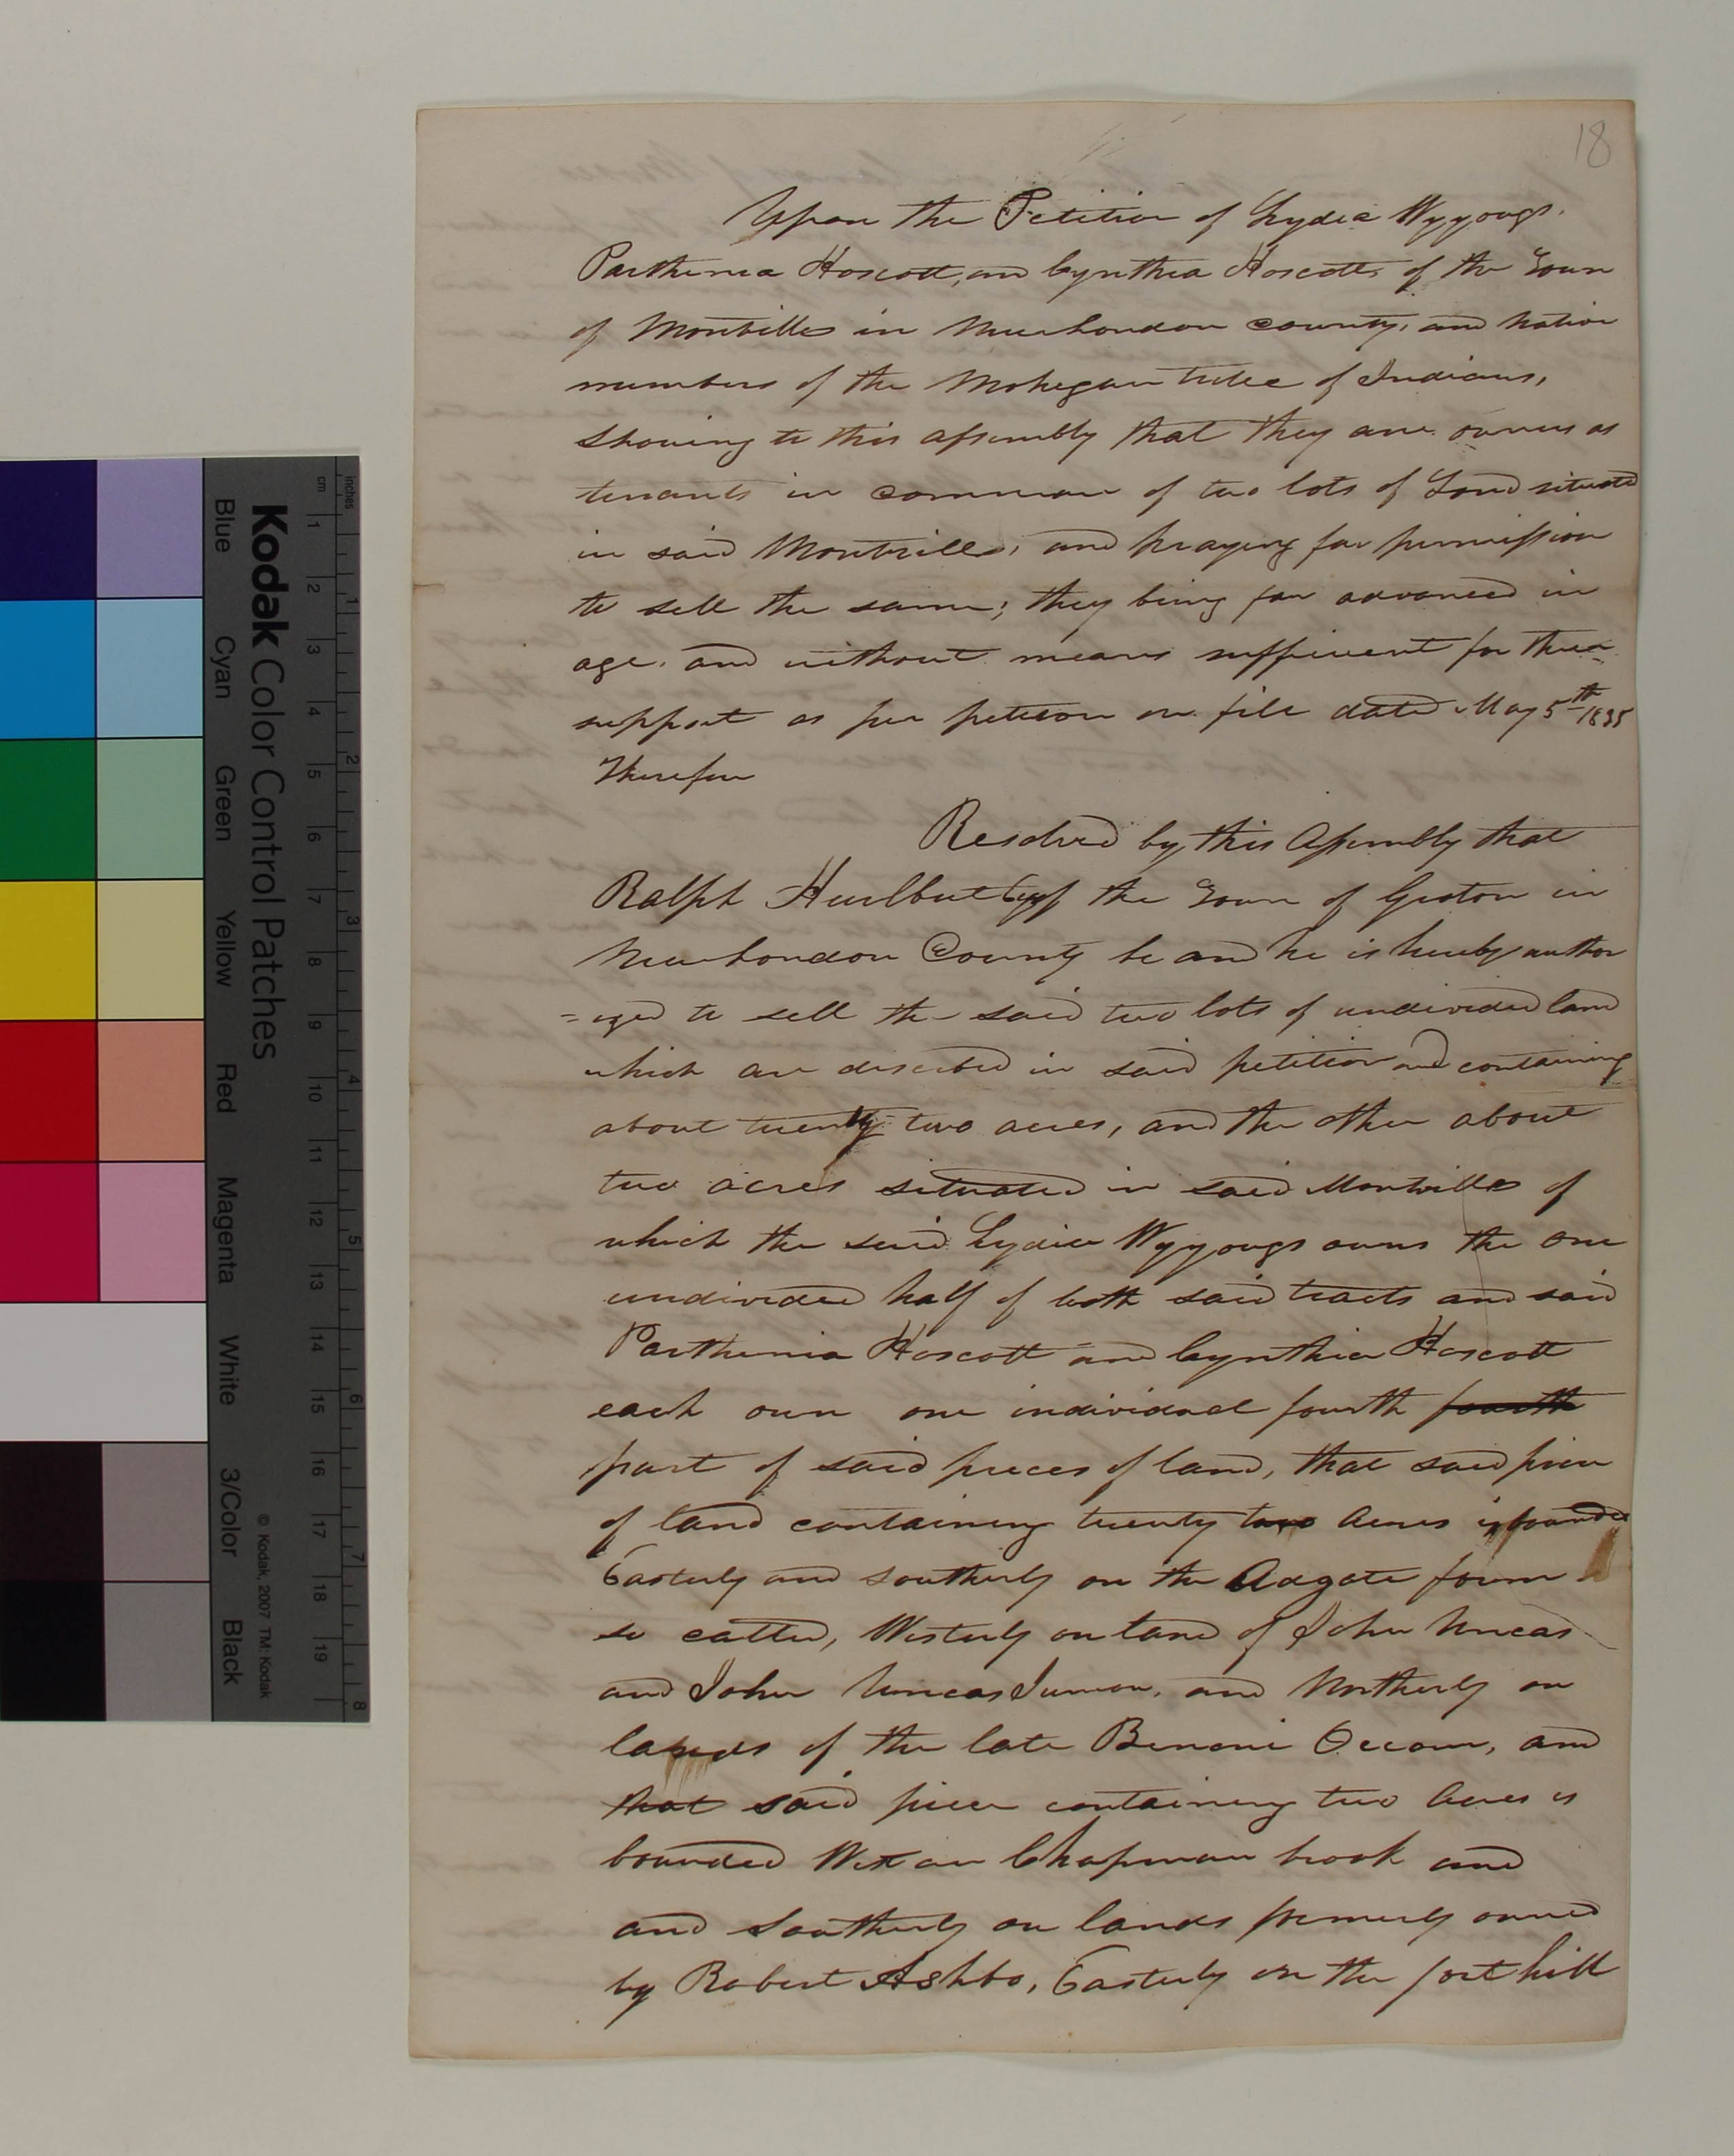 18
Upon the Petition of Lydia Wyyougs.
Parthenia Hoscott, and Cynthia Hoscott, of the Town
of Montville in New London County, and native
members of the Mohegan tribe of Indians,
Showing to this Assembly that they are owners as
tenants in common of two lots of Land situated
in said Montville, and praying for permission
to sell the same; they being far advanced in
age, and without means sufficient for their
support as per petition on file dated May 5th 1835
Therefore
Resolved by this Assembly that
Ralph Hurlbut Esq of the Town of Groton in
New London County be and he is hereby author
=ized to sell the said two lots of undivided land
which are described in said petition and containing
about twenty two acres, and the other about
two acres situated in said Montville of
which the said Lydia Wyyougs owns the one
undivided half of both said tracts and said
Parthenia Hoscott and Cynthia Hoscott
each own one individual fourth fourth
part of said pieces of land, that said piece
of land containing twenty two acres is bounded
Easterly and Southerly on the Adgate farm
so called, Westerly on land of John Uncas
and John Uncas Junior, and Northerly on
lands of the late Benoni Occom, and
that said piece containing two acres is
bounded West on Chapman brook and
and Southerly on lands formerly owned
by Robert Ashbo, Easterly on the fort hill
Kodak Color Control Patches
Blue Cyan Green Yellow Red Magenta White 3/Color Black
© Kodak, 2007 TM: Kodak
cm 1 2 3 4 5 6 7 8 9 10 11 12 13 14 15 16 17 18 19
inches 1 2 3 4 5 6 7 8